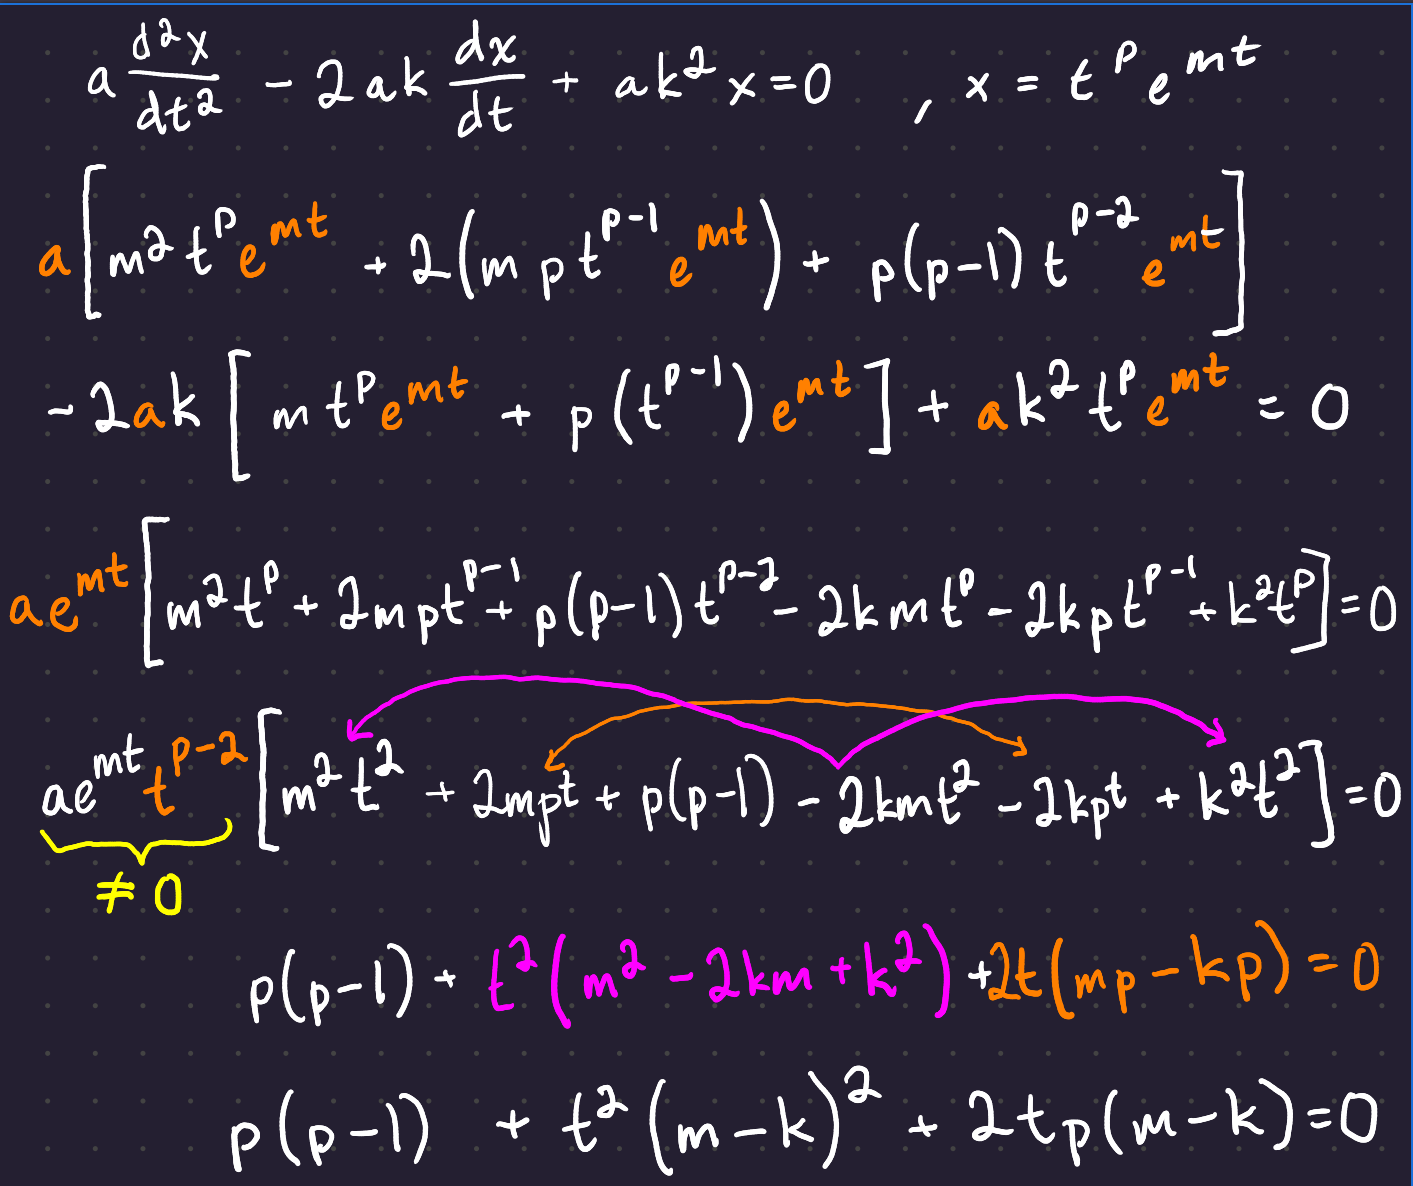 a d²x/dt² - 2ak dx/dt + ak²x = 0 , x = t^p e^{mt}
a[m² t^p e^{mt} + 2(m p t^{p-1} e^{mt}) + p(p-1) t^{p-2} e^{mt}]
-2ak[m t^p e^{mt} + p(t^{p-1}) e^{mt}] + ak² t^p e^{mt} = 0
ae^{mt}[m² t^p + 2mpt^{p-1} + p(p-1)t^{p-2} - 2kmt^p - 2kpt^{p-1} + k²t^p] = 0
ae^{mt} t^{p-2}[m²t² + 2mpt + p(p-1) - 2kmt² - 2kpt + k²t²] = 0
≠ 0
p(p-1) + t²(m² - 2km + k²) + 2t(mp - kp) = 0
p(p-1) + t²(m-k)² + 2tp(m-k) = 0